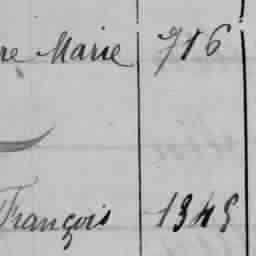 re Marie 716
François 1345